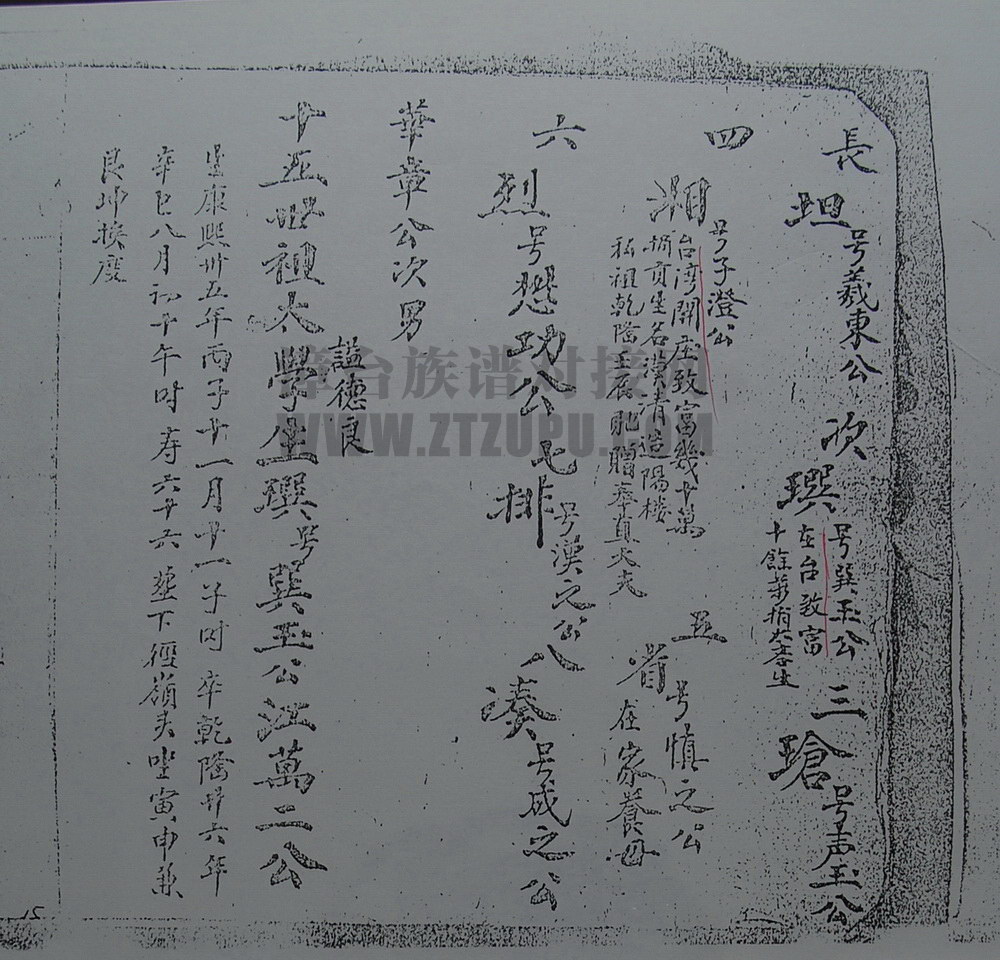 長
坦 号羲東公
次
璵 号巽玉公
在台致富
十餘萬捐太斈生
三
瑲 号声玉公
四
湘 号子澄公
台湾開庄致富幾十萬
捐貢生名漢清造陽楼
私祖乾隆壬辰貤贈奉直大夫
五
省 号慎之公
在家養母
六
烈 号懋功公
七
排 号漢之公
八
湊 号成之公
華章公次男
謚德良
十五世祖太學生璵号巽玉公江萬二公
生康熙卅五年丙子十一月十一子时卒乾隆廿六年
辛巳八月初十午时寿六十六塟下徑嶺夫坐寅申兼
艮坤揆度
漳台族谱对接
WWW.ZTZUPU.COM